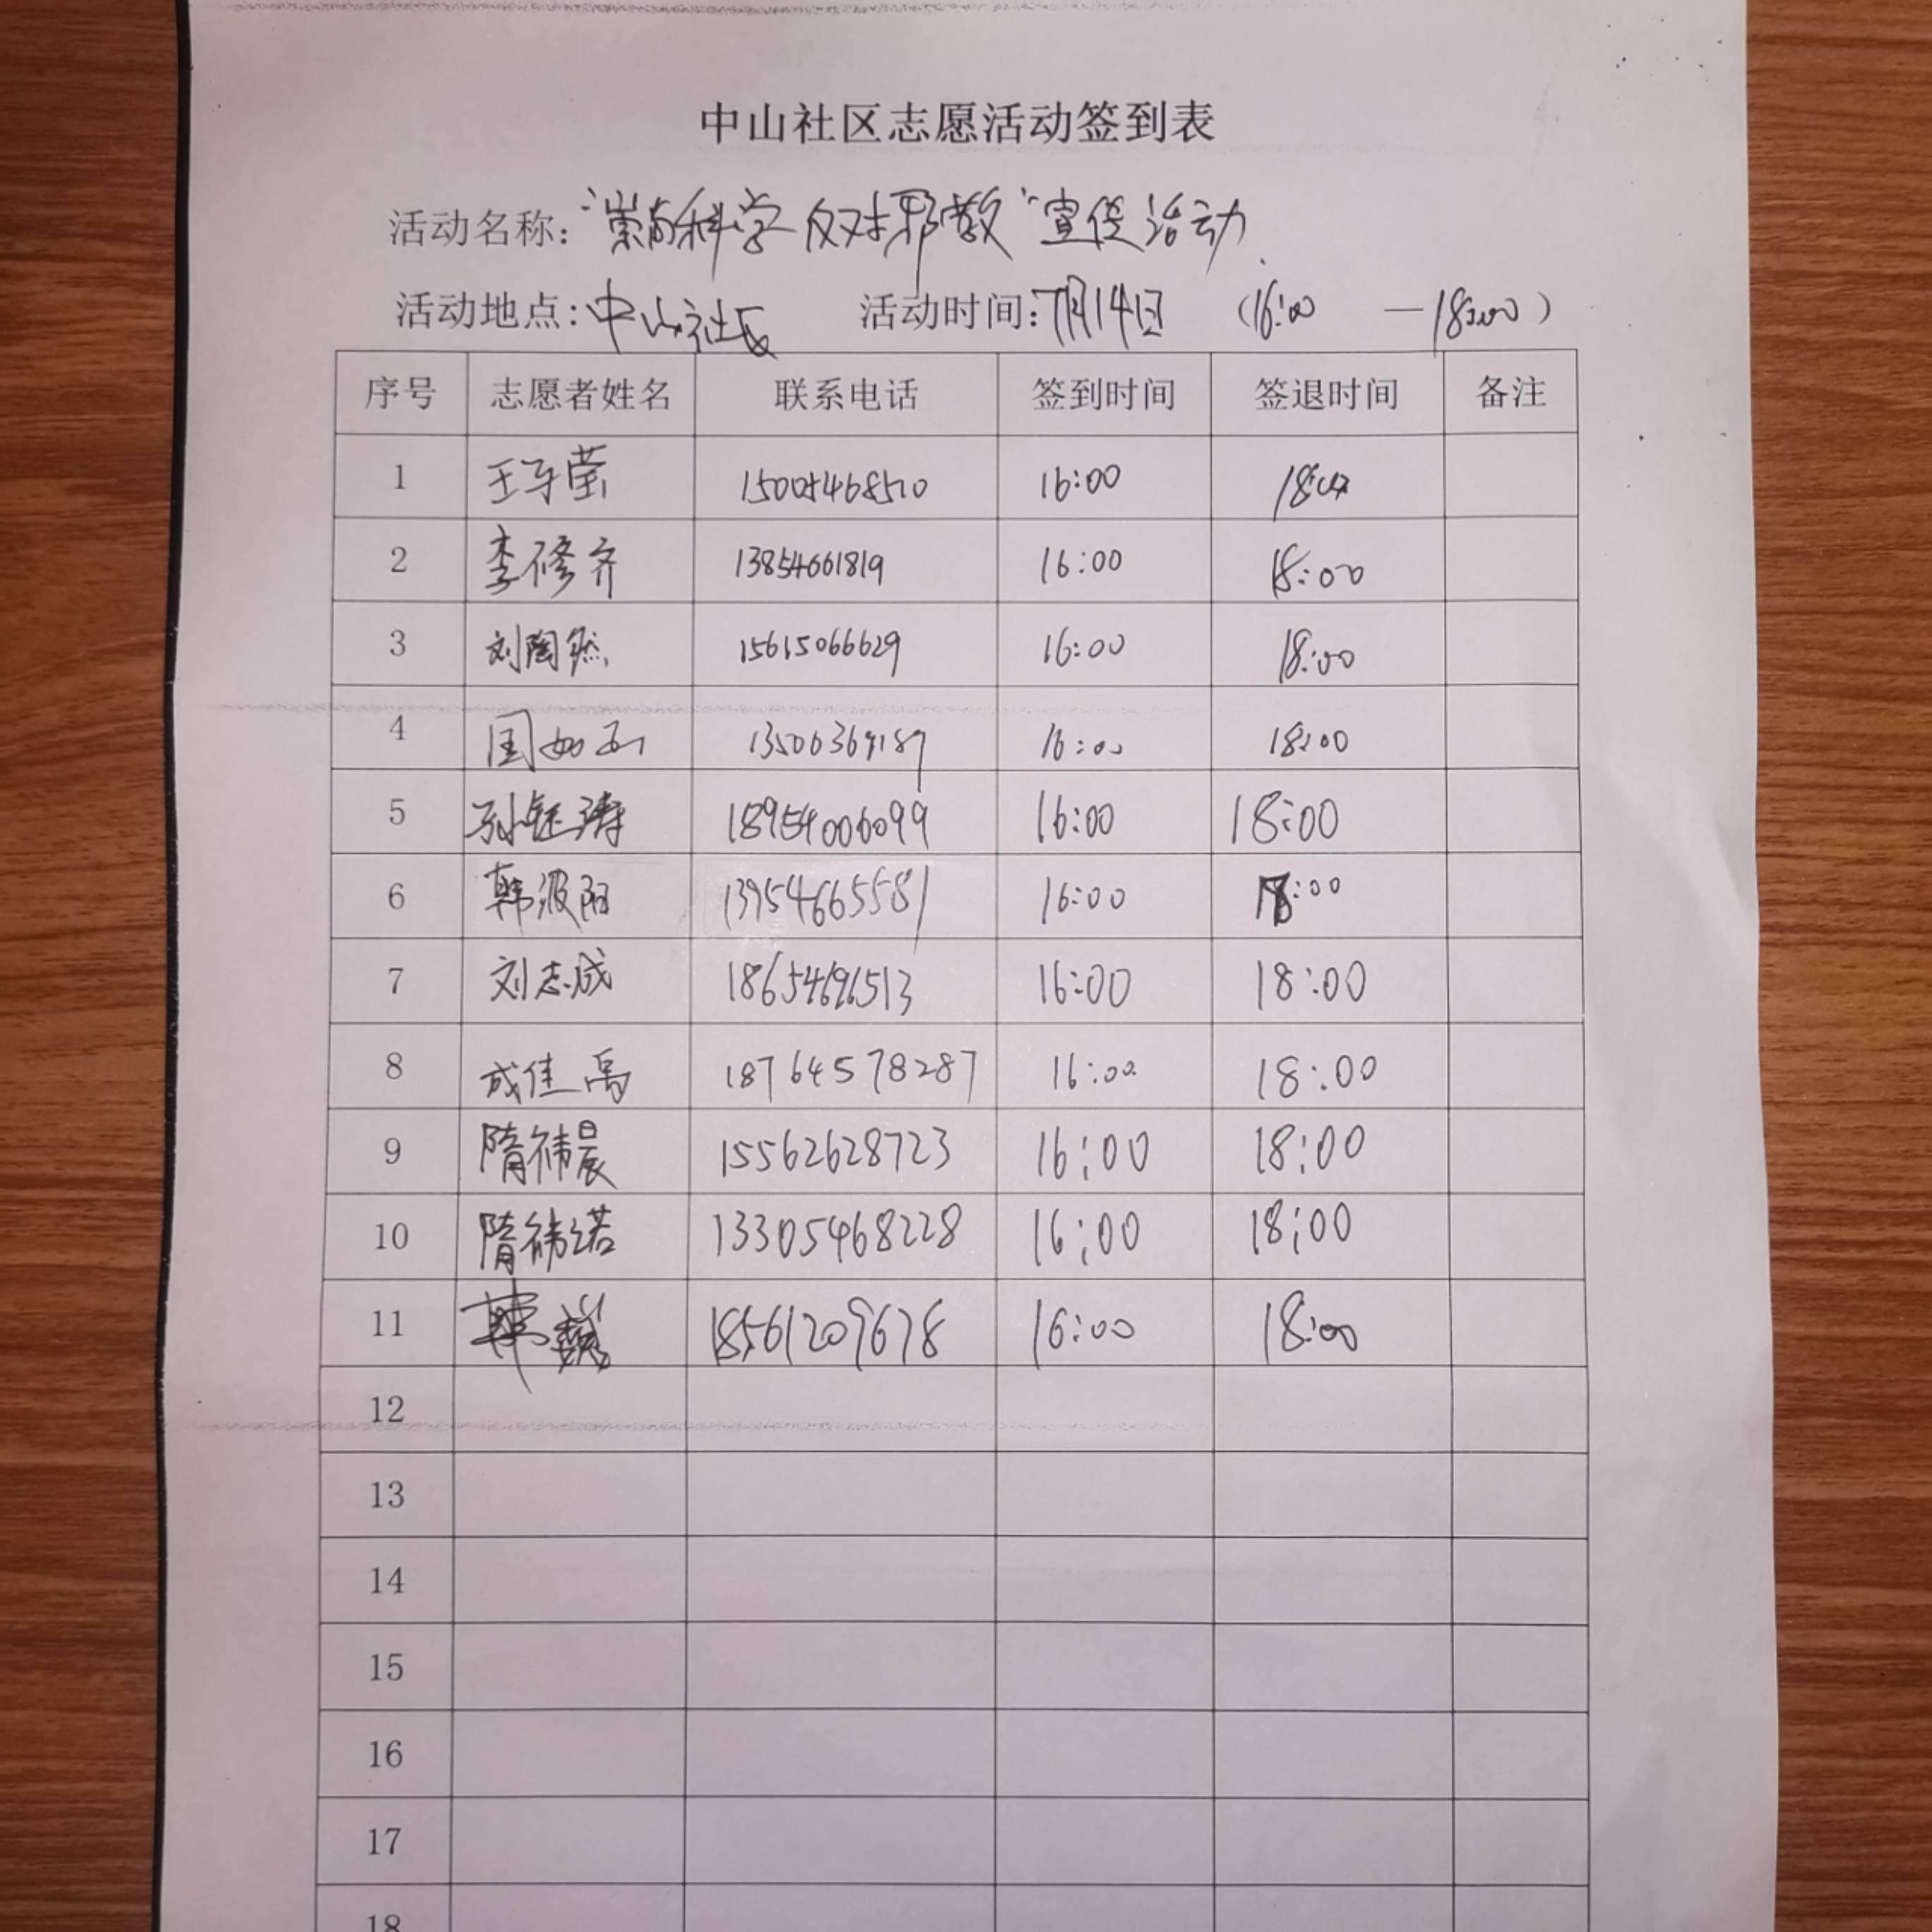 中山社区志愿活动签到表
活动名称："崇尚科学 反对邪教"宣传活动
活动地点：中山社区 活动时间：7月14日 （16:00 —18:00）
序号 志愿者姓名 联系电话 签到时间 签退时间 备注
1 王子莹 15005468510 16:00 18:00
2 李修齐 13854661819 16:00 18:00
3 刘陶然 15615066629 16:00 18:00
4 国如玉 13506369189 16:00 18:00
5 孙钰涛 18954006099 16:00 18:00
6 韩波阳 13954665581 16:00 18:00
7 刘志成 16:00 18:00
8 成佳禹 18764578287 16:00 18:00
9 隋祎晨 15562628723 16:00 18:00
10 隋祎诺 13305468228 16:00 18:00
11 韩巍 18561209678 16:00 18:00
12
13
14
15
16
17
18